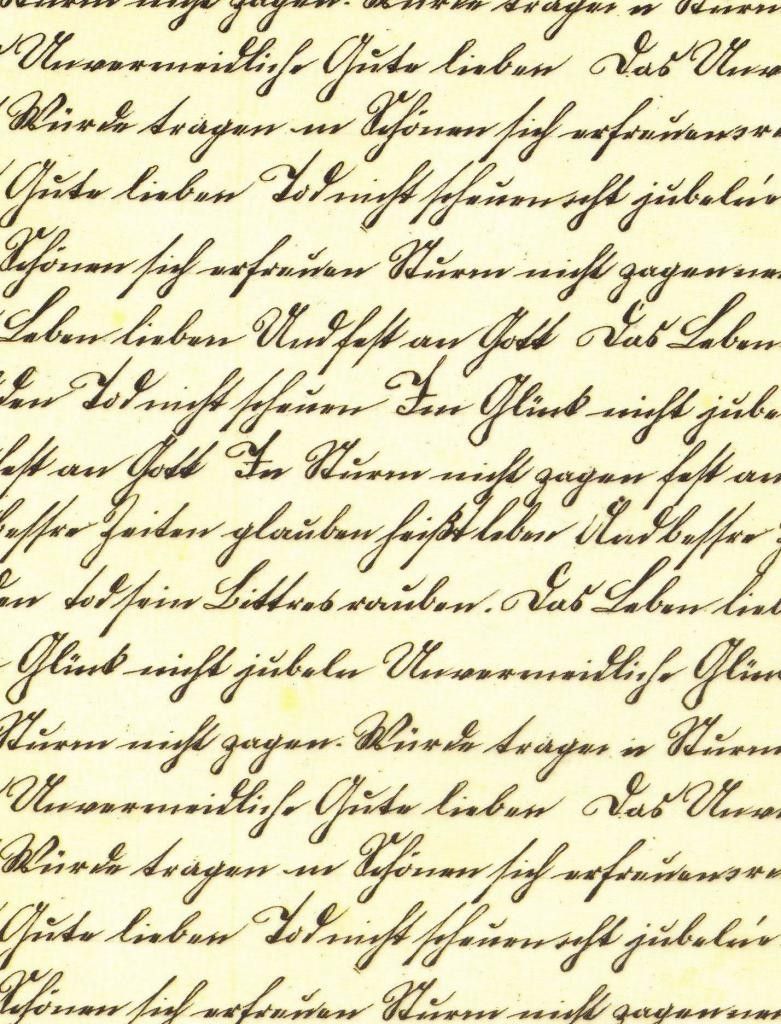 Sturm nicht zagen. Würde tragen n Sturm
Unvermeidliche Gute lieben Das Unv
Würde tragen m Schönen sich erfreuen
Gute lieben Tod nicht scheuen cht jubeln
Schönen sich erfreuen Sturm nicht zagen
Leben lieben Und fest an Gott Das Leben
den Tod nicht scheuen Im Glück nicht jube
fest an Gott In Sturm nicht zagen fest an
bessre Zeiten glauben heißt leben And bessre
den tod sein Bittres rauben. Das Leben lieb
Glück nicht jubeln Unvermeidliche Glü
Sturm nicht zagen. Würde tragen n Sturm
Unvermeidliche Gute lieben Das Unv
Würde tragen m Schönen sich erfreuen
Gute lieben Tod nicht scheuen cht jubeln
Schönen sich erfreuen Sturm nicht zagen